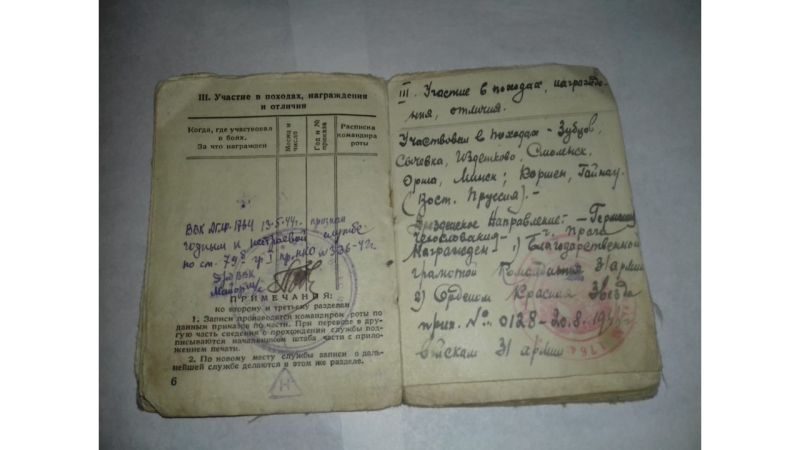 III. Участие в походах, награждения
и отличия
Когда, где участвовал
в боях.
За что награжден
Месяц и
число
Год и №
приказа
Расписка
командира
роты
ВВК 1784 13.5.44г. признан
годным к нестроевой службе
по ст. 79 гр I пр. НКО № 336-42г.
ВВК
Майор м/с
ПРИМЕЧАНИЯ:
ко второму и третьему разделам
1. Записи производятся командиром роты по
данным приказов по части. При переводе в дру-
гую часть сведения о прохождении службы под-
писываются начальником штаба части с прило-
жением печати.
2. По новому месту службы записи о даль-
нейшей службе делаются в этом же разделе.
6
III. Участие в походах, награжде-
ния, отличия.
Участвовал в походах - Зубцов,
Сычевка, Издешково, Смоленск,
Орша, Минск; Гайнау.
(Вост. Пруссия). -
Дрезденское Направление: - Германия
Чехословакия - г. Прага
Награжден - 1) Благодарственной
грамотой 31 армии
2) Орденом Красная Звезда
№: 0128 - 20.8 -
войскам 31 армии
Н